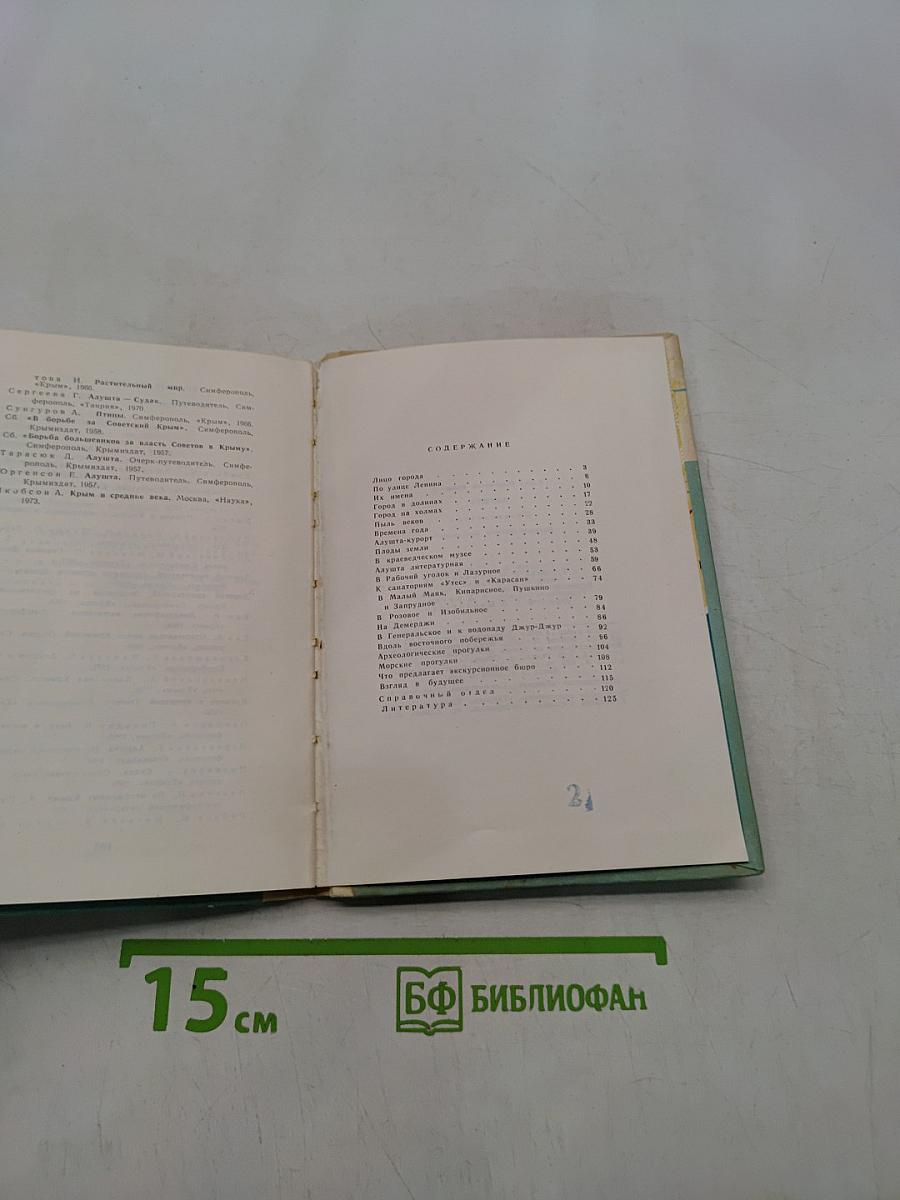 това И. Растительный мир. Симферополь,
«Крым», 1966.
Сергеева Г. Алушта — Судак. Путеводитель. Сим-
ферополь, «Таврия», 1970.
Сунгуров А. Птицы. Симферополь, «Крым», 1966.
Сб. «В борьбе за Советский Крым». Симферополь,
Крымиздат, 1958.
Сб. «Борьба большевиков за власть Советов в Крыму».
Симферополь, Крымиздат, 1957.
Тарасюк Д. Алушта. Очерк-путеводитель. Симфе-
рополь, Крымиздат, 1957.
Юргенсон Е. Алушта. Путеводитель. Симферополь,
Крымиздат, 1957.
Якобсон А. Крым в средние века. Москва, «Наука»,
1973.
СОДЕРЖАНИЕ
Лицо города 3
По улице Ленина 6
Их имена 10
Город в долинах 17
Город на холмах 22
Пыль веков 28
Времена года 33
Алушта-курорт 39
Плоды земли 48
В краеведческом музее 53
Алушта литературная 59
В Рабочий уголок и Лазурное 66
К санаториям «Утес» и «Карасан» 74
В Малый Маяк, Кипарисное, Пушкино
и Запрудное 79
В Розовое и Изобильное 84
На Демерджи 86
В Генеральское и к водопаду Джур-Джур 92
Вдоль восточного побережья 96
Археологические прогулки 104
Морские прогулки 108
Что предлагает экскурсионное бюро 112
Взгляд в будущее 115
Справочный отдел 120
Литература 125
15 см
БФ БИБЛИОФАН